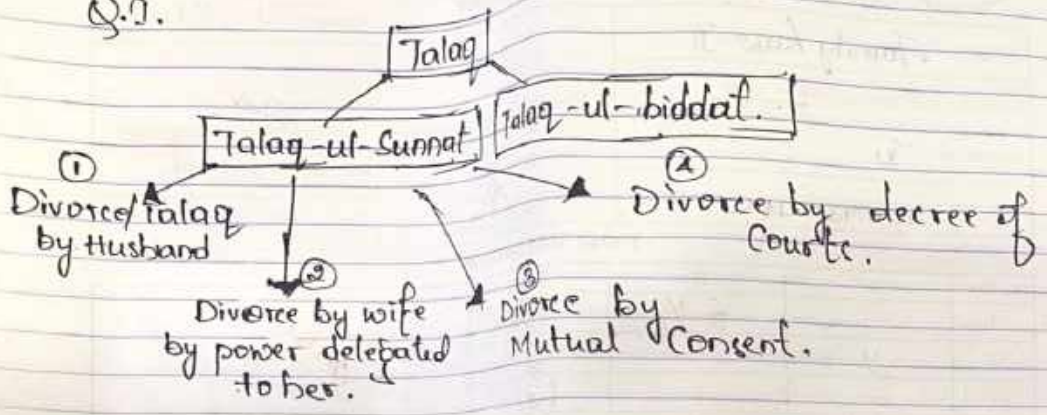 Q.1.
Talaq
Talaq-ul-Sunnat
Talaq-ul-biddat.
①
Divorce/Talaq
by Husband
②
Divorce by wife
by power delegated
to her.
③
Divorce by
Mutual Consent.
④
Divorce by decree of
Courts.